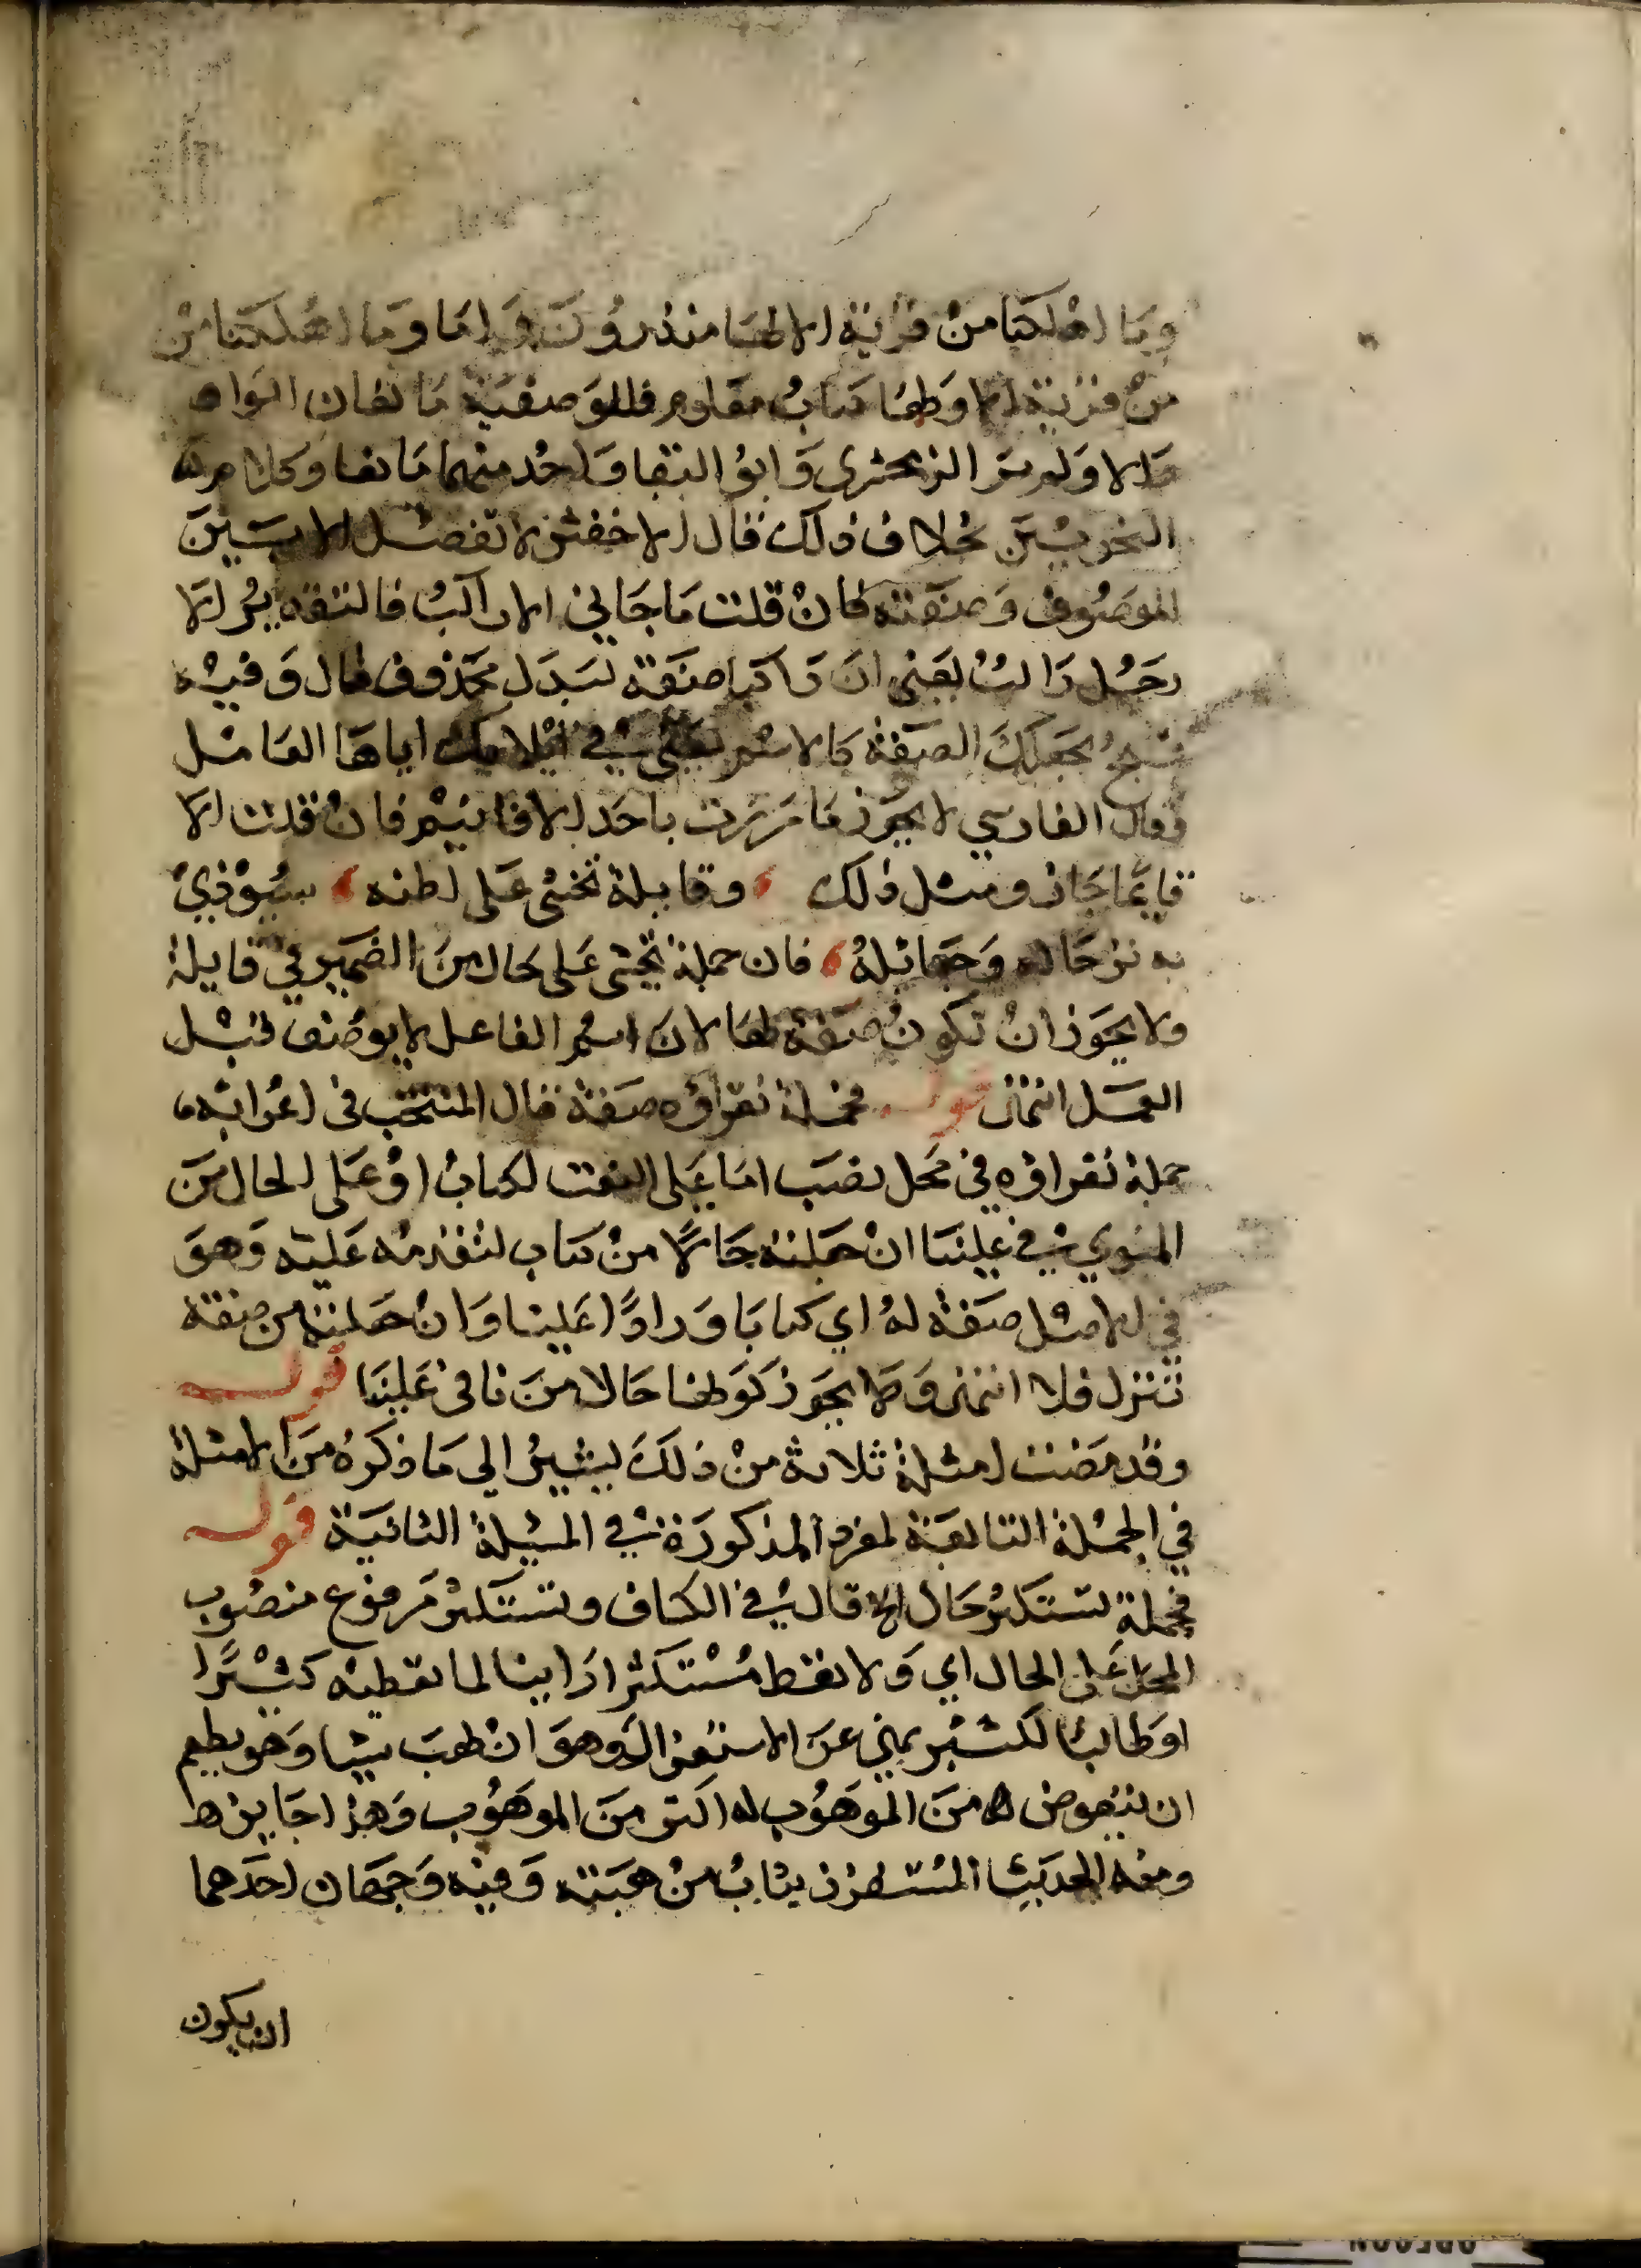 وما اهلكنا من قرية الا لها منذرون واما وما اهلكنا من
من قرية الا ولها كتاب معلوم فللوصفية مانعان الواو
والا ولم ير الزمخشري وابو البقا واحد منهما مانعا وكلام
النحويين بخلاف ذلك قال الاخفش لا تفصل الا بين
الموصوف وصفته فان قلت ما جاني الا راكب فالتقدير الا
رجل راكب يعني ان راكبا صفة لبدل محذوف قال وفيه
قبح بجعلك الصفة كالاسم يعني في ايلايك اياها العامل
وقال الفارسي لا يجوز ما مررت باحد الا قايم فان قلت الا
قايما جاز ومثل ذلك وقايلة تخشى على اظنه سيوذي
به ترحاله وجعايله فان جملة تخشى على حال من الضمير في قايلة
ولا يجوز ان تكون صفة لها لان اسم الفاعل لا يوصف قبل
العمل انتهى قوله فجملة نقراؤه صفة قال المنتجب في اعرابه
جملة نقراؤه في محل نصب اما على النعت لكتاب او على الحال من
المنوي في علينا ان جعلته حالا من كتاب لتقدمه عليه وهو
في الاصل صفة له اي كتابا واردا علينا وان جعلته من صفة
تنزل فلا انتهى ولا يجوز كونها حالا من نا في علينا قوله
وقد مضت امثلة ثلاثة من ذلك ليشير الي ما ذكره من الامثلة
في الجملة التابعة لمفرد المذكورة في المسيلة الثانية قوله
فجملة تستكثر حال الخ قال في الكشاف وتستكثر مرفوع منصوب
المحل على الحال اي ولا تعط مستكثرا رايا لما تعطيه كثيرا
او طالبا لكثير نهي عن الاستغزار وهو ان يهب شيا وهو يطمع
ان يتعوض من الموهوب له اكثر من الموهوب وهذا جايز
ومنه الحديث المستغزر يثاب من هبته وفيه وجهان احدهما
ان يكون